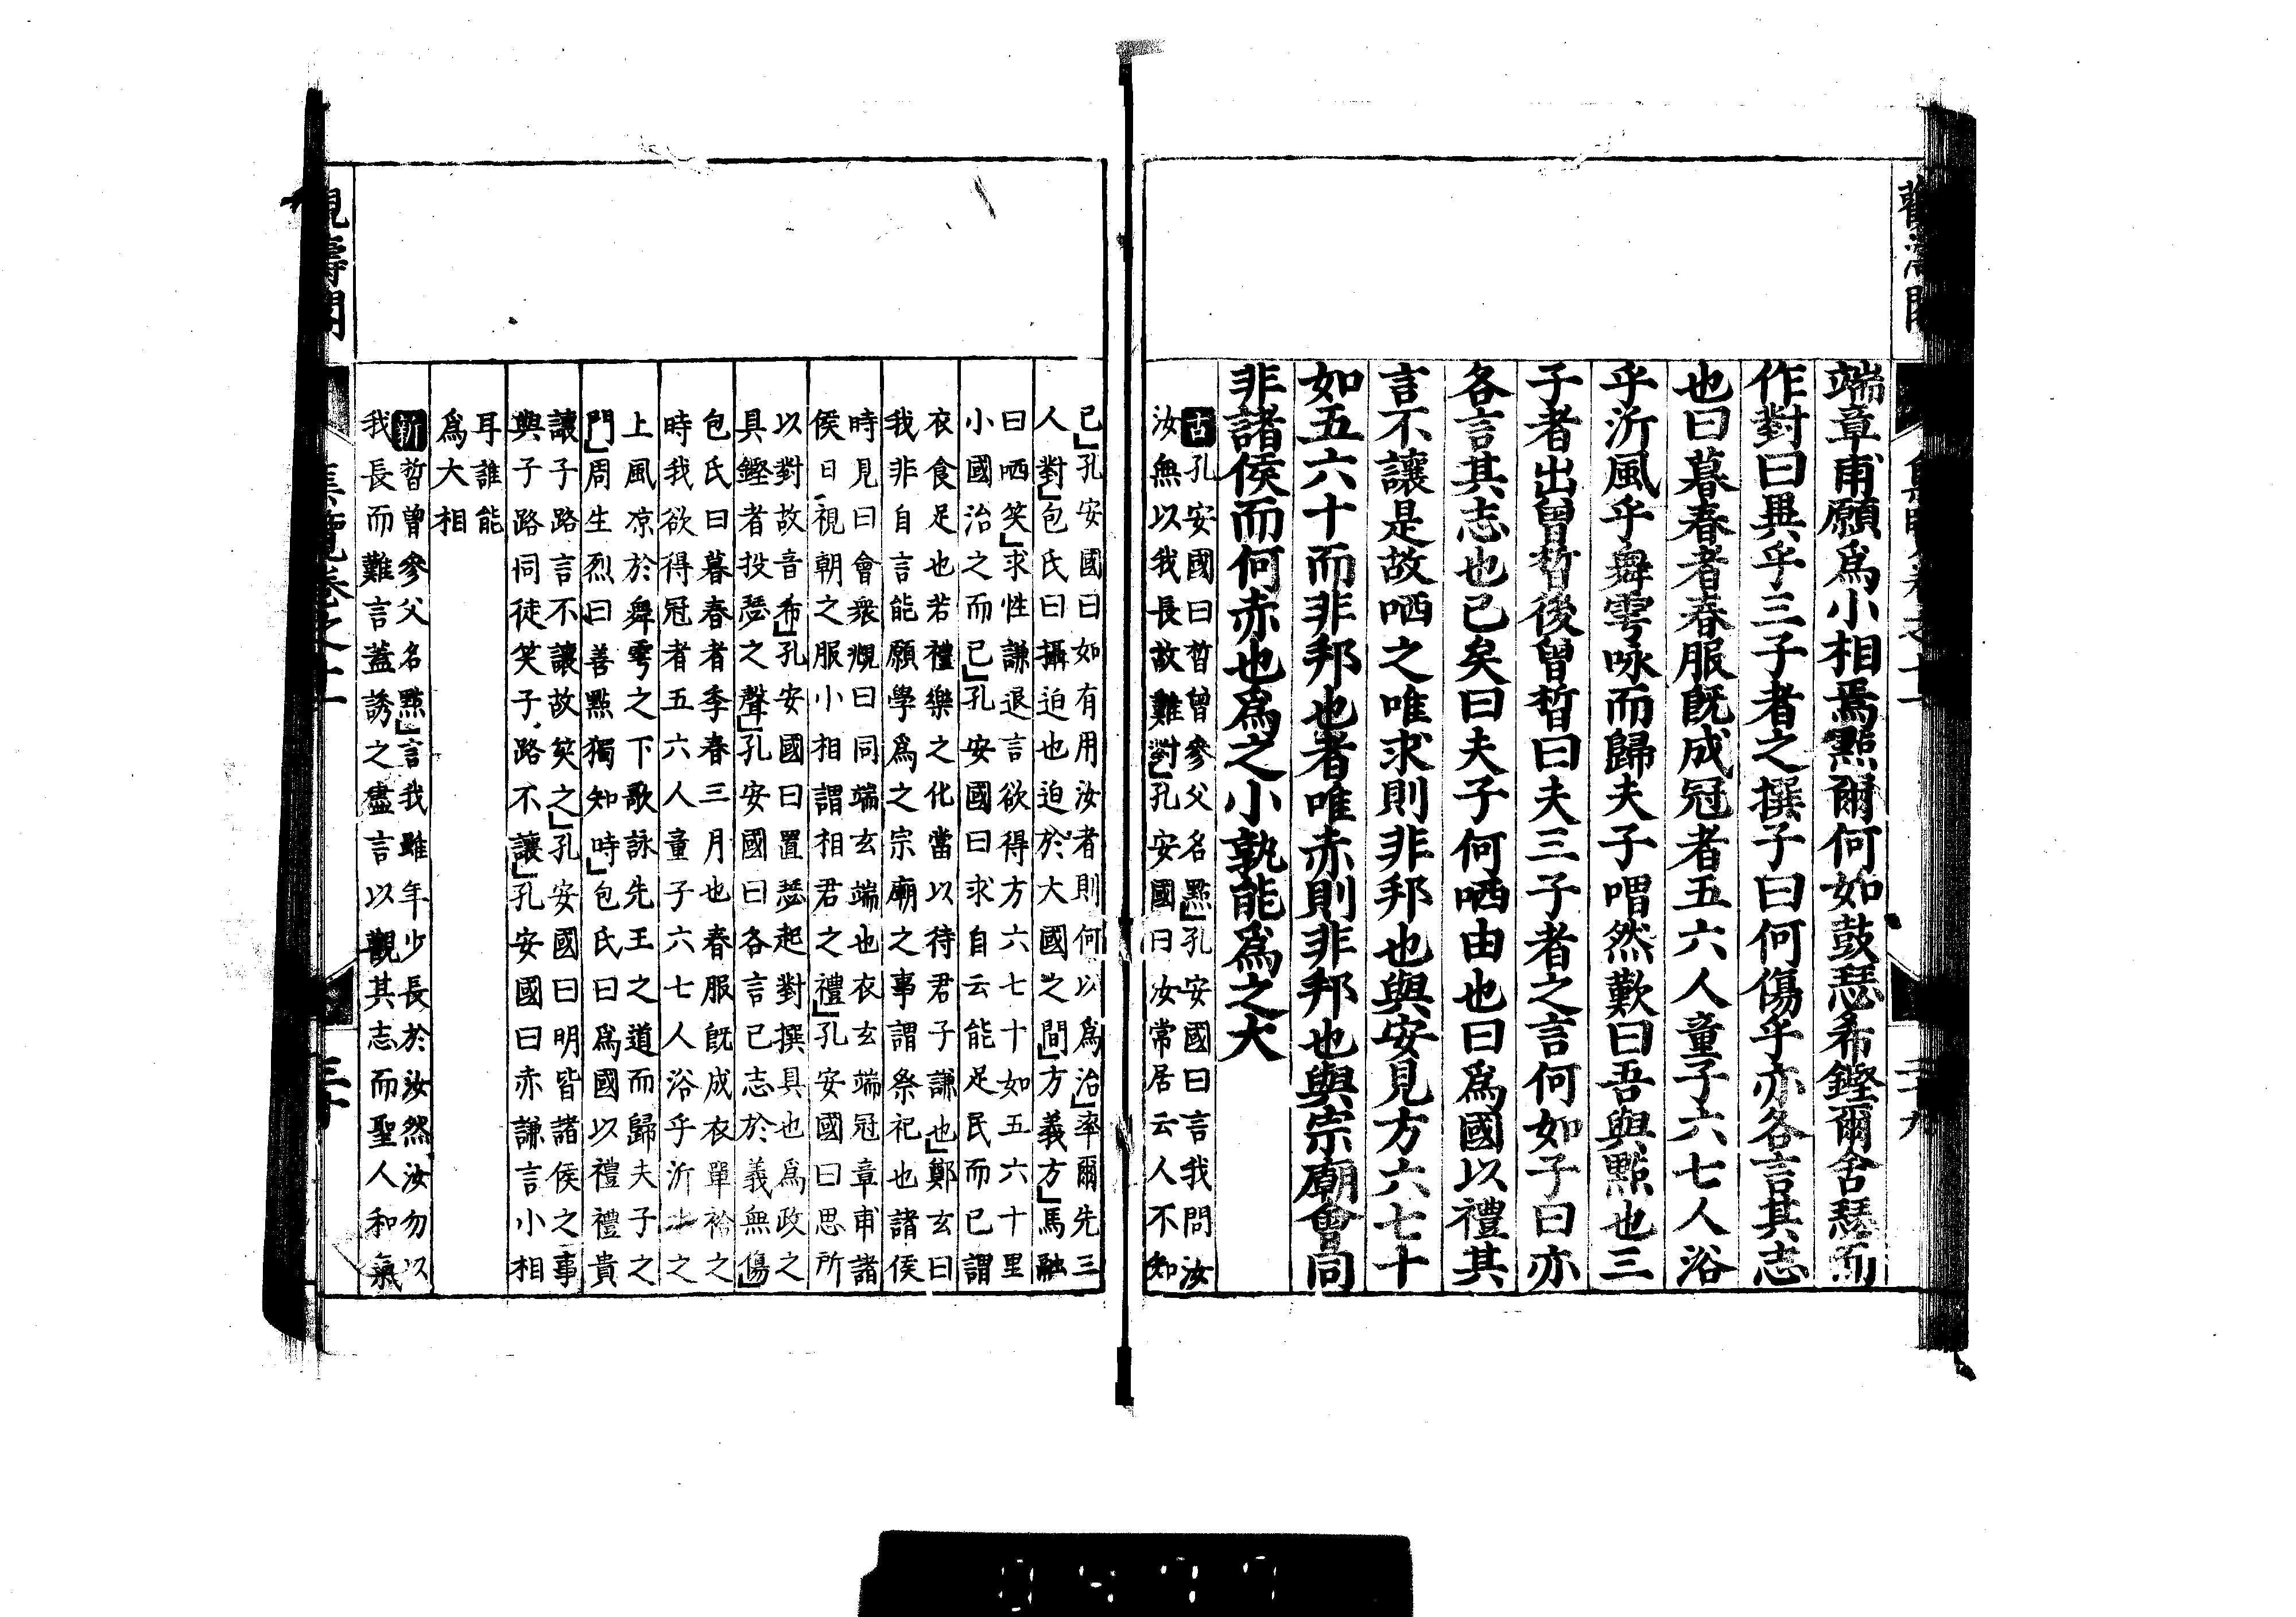 端章甫願爲小相焉點爾何如鼓瑟希鏗爾舍瑟而
作對曰異乎三子者之撰子曰何傷乎亦各言其志
也曰暮春者春服既成冠者五六人童子六七人浴
乎沂風乎舞雩咏而歸夫子喟然歎曰吾與點也三
子者出曾晳後曾晳曰夫三子者之言何如子曰亦
各言其志也已矣曰夫子何哂由也曰爲國以禮其
言不讓是故哂之唯求則非邦也與安見方六七十
如五六十而非邦也者唯赤則非邦也與宗廟會同
非諸侯而何赤也爲之小孰能爲之大
古孔安國曰晳曾參父名點孔安國曰言我問汝
汝無以我長故難對孔安國曰汝常居云人不知
己孔安國曰如有用汝者則何以爲治率爾先三
人對包氏曰攝迫也迫於大國之間方義方馬融
曰哂笑求性謙退言欲得方六七十如五六十里
小國治之而已孔安國曰求自云能足民而已謂
衣食足也若禮樂之化當以待君子謙也鄭玄曰
我非自言能願學爲之宗廟之事謂祭祀也諸侯
時見曰會衆覜曰同端玄端也衣玄端冠章甫諸
侯日視朝之服小相謂相君之禮孔安國曰思所
以對故音希孔安國曰置瑟起對撰具也爲政之
具鏗者投瑟之聲孔安國曰各言己志於義無傷
包氏曰暮春者季春三月也春服既成衣單袷之
時我欲得冠者五六人童子六七人浴乎沂水之
上風凉於舞雩之下歌詠先王之道而歸夫子之
門周生烈曰善點獨知時包氏曰爲國以禮禮貴
讓子路言不讓故笑之孔安國曰明皆諸侯之事
與子路同徒笑子路不讓孔安國曰赤謙言小相
耳誰能
爲大相
新晳曾參父名點言我雖年少長於汝然汝勿以
我長而難言蓋誘之盡言以觀其志而聖人和氣